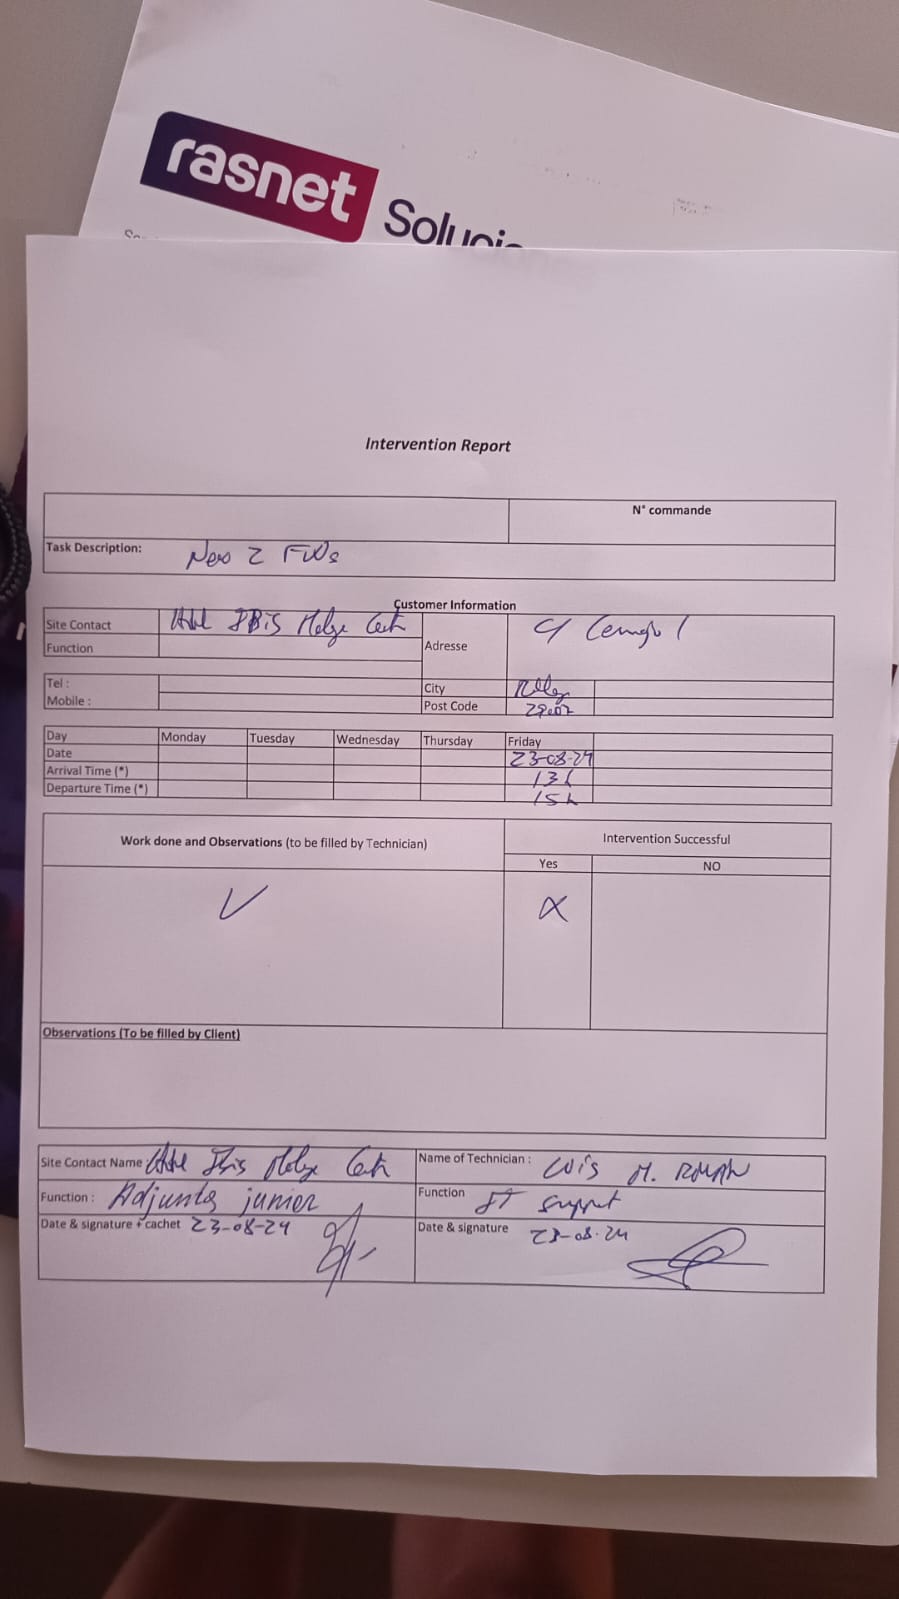 rasnet Soluci
Intervention Report
N° commande
Task Description: New 2 FWs
Customer Information
Site Contact Hotel IBIS
Adresse C/
Function
Tel :
City
Mobile :
Post Code
Day Monday Tuesday Wednesday Thursday Friday
Date 23-08-24
Arrival Time (*) 13h
Departure Time (*) 15h
Work done and Observations (to be filled by Technician) Intervention Successful
Yes NO
X
Observations (To be filled by Client)
Site Contact Name : Hotel Ibis
Name of Technician : Luis M.
Function : Adjunta junior
Function IT support
Date & signature + cachet 23-08-24
Date & signature 23-08-24